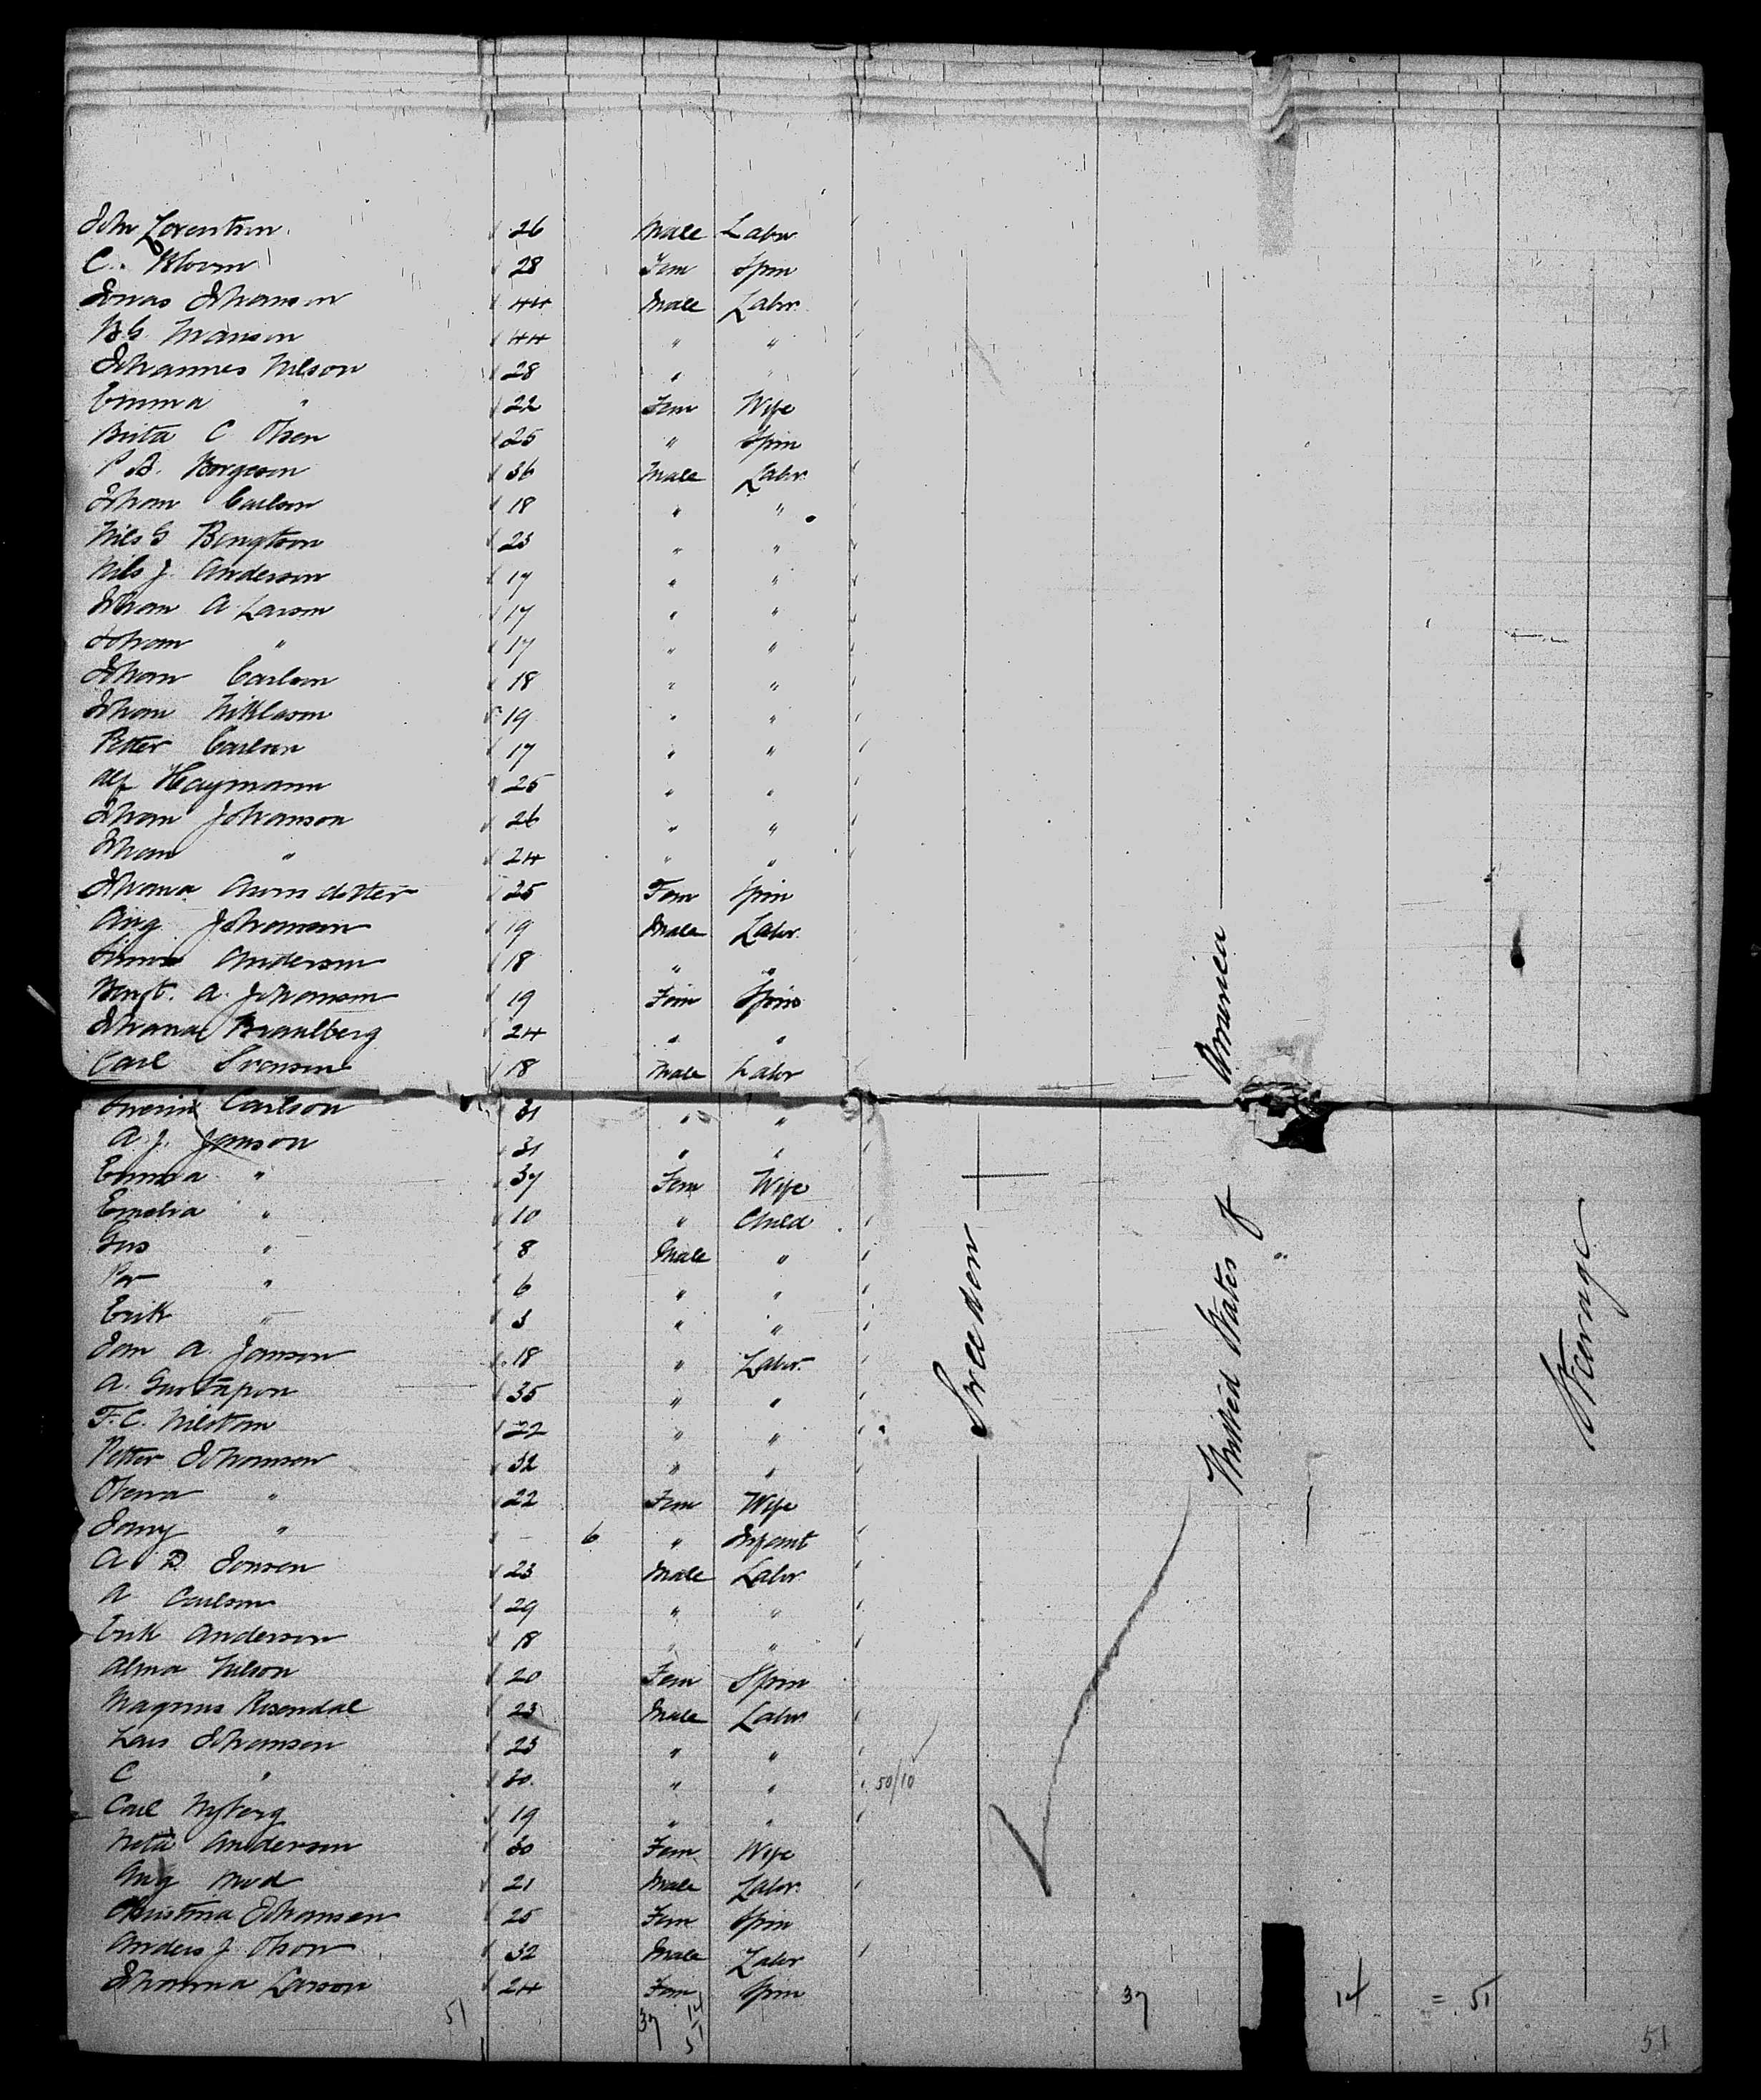 John Lorentson 26 Male Labor
C. Bloom 28 Fem Spin
Jonas Johanson 44 Male Labor
B.G. Manson 44 " "
Johannes Nilson 28 " "
Emma " 22 Fem Wife
Brita C Olsen 25 " Spin
P.A. Borgeson 36 Male Labor
Johan Carlson 18 " "
Nils G Bengtson 23 " "
Nils J. Anderson 17 " "
Johan A Larson 17 " "
Johan " 17 " "
Johan Carlson 18 " "
Johan Niklason 19 " "
Petter Carlson 17 " "
Alf Haymann 25 " "
Johan Johanson 26 " "
Johan " 24 " "
Johana dotter 25 Fem Spin
Aug Johanson 19 Male Labor
Anderson 18 " "
Bengt. A. Johanson 19 Fem Spin
Johana 24 " "
Carl Svenson 18 Male Labor
Carlson 31 " "
A. J. Janson 31 " "
Emma " 37 Fem Wife
Emelia " 10 " Child
Gus " 8 Male "
Per " 6 " "
Erik " 3 " "
Jan A Janson 18 " Labor
A. Gustafson 35 " "
F.C. Nilstom 22 " "
Petter Johanson 32 " "
" 22 Fem Wife
" - 6 " Infant
A D Jonson 23 Male Labor
A Carlson 29 " "
Erik Anderson 18 " "
Alma Nilson 20 Fem Spin
Magnus Rosendal 23 Male Labor
Lars Johanson 23 " "
C " 30 " " 50/10
Carl Nyberg 19 " "
Neta Anderson 30 Fem Wife
Aug 21 Male Labor
Christina Johansen 25 Fem Spin
Anders J. Olson 32 Male Labor
Johanna Larson 24 Fem Spin
Sweden
United States of America
Steerage
51 37 14 51
37 14 = 51
51